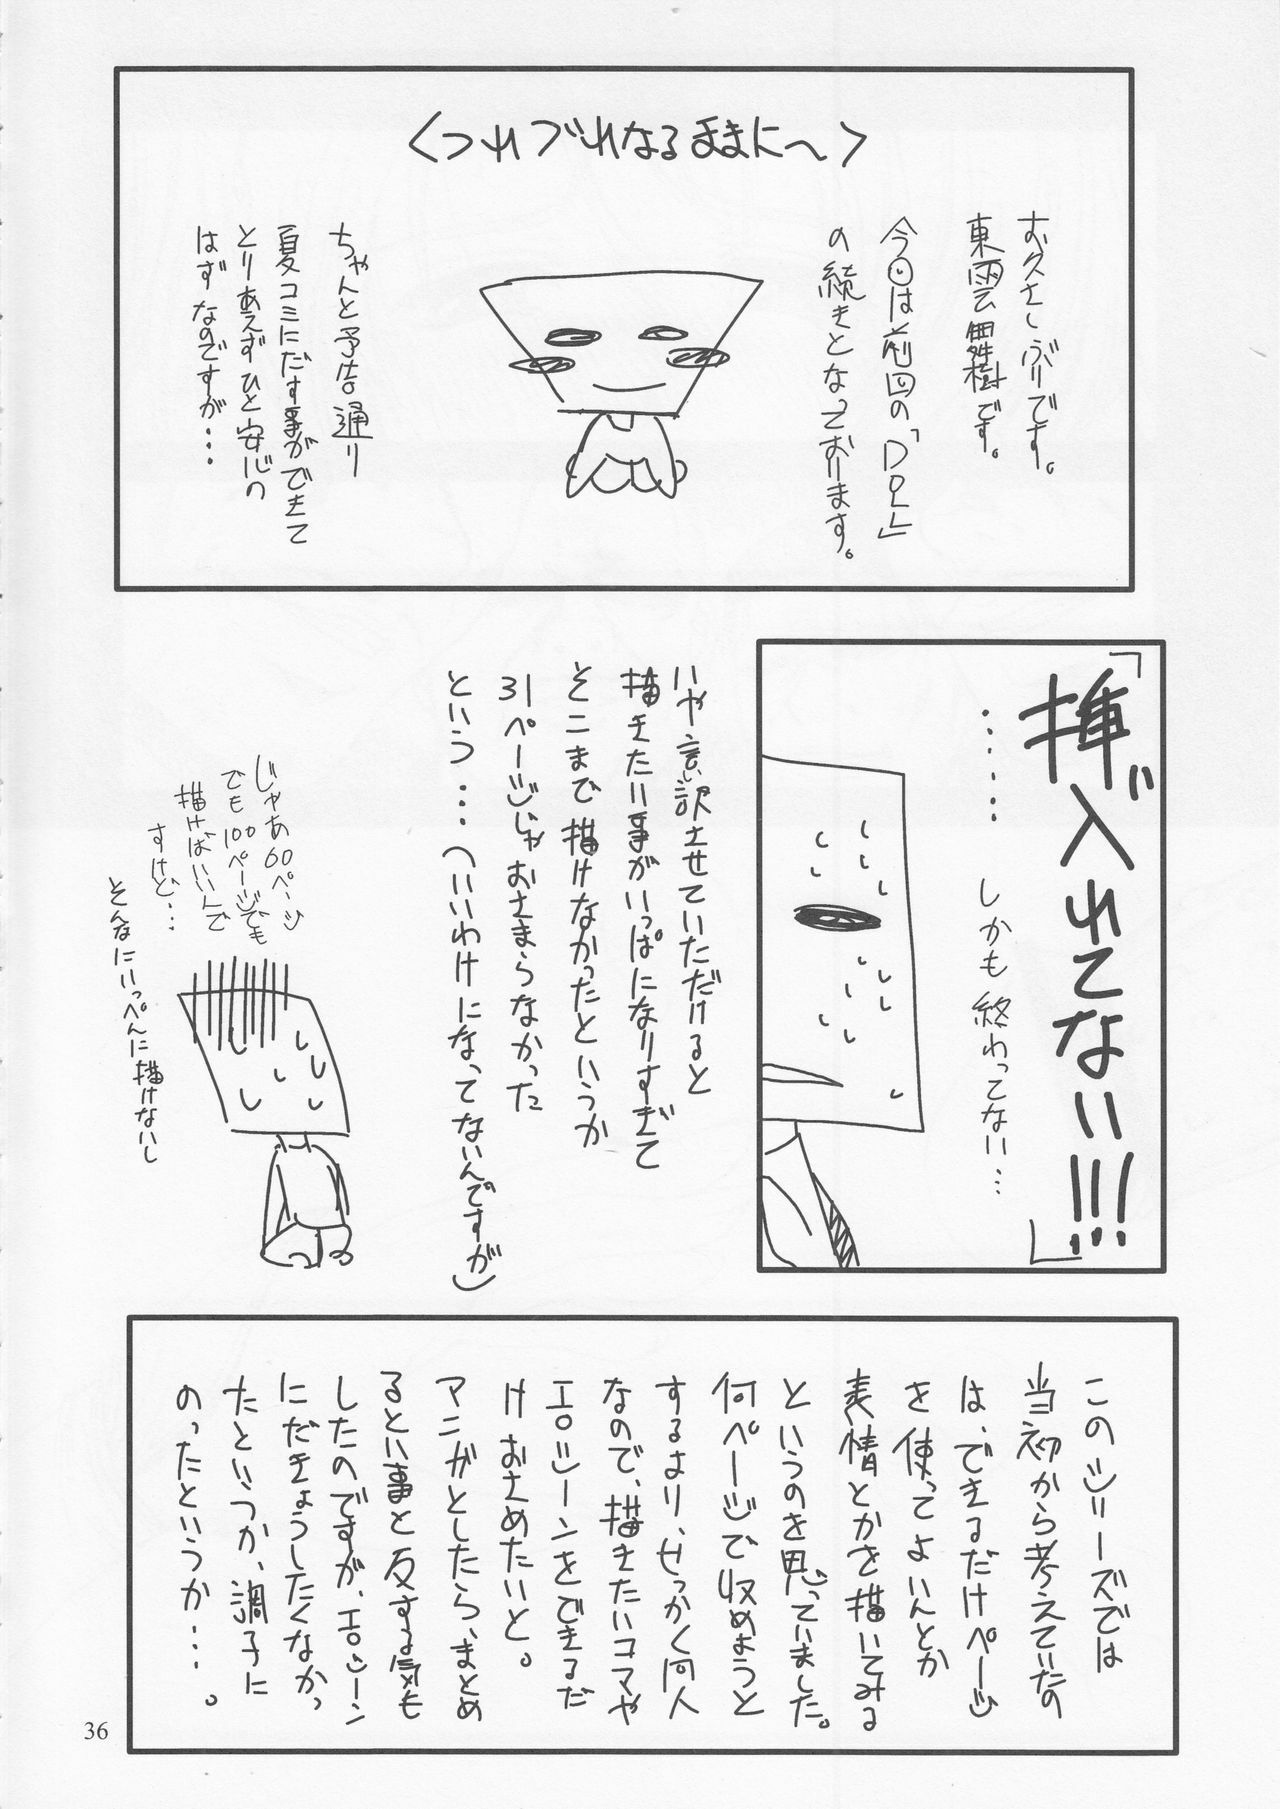 <つれづれなるままに〜>
お久しぶりです。
東雲舞樹です。
今回は前回の「DOL」
の続きとなっております。
ちゃんと予告通り
夏コミにだす事ができて
とりあえずひと安心の
はずなのですが・・・
「挿入れてない!!!」
・・・・・しかも終わってない・・・
いや言い訳させていただけると
描きたい事がいっぱになりすぎて
そこまで描けなかったというか
31ページじゃおさまらなかった
という・・・(いいわけになってないんですが)
じゃあ60ページ
でも100ページでも
描けばいいんで
すけど・・・
そんなにいっぺんに描けないし
このシリーズでは
当初から考えていたの
は、できるだけページ
を使ってよいんとか
表情とかを描いてみる
というのを思っていました。
何ページで収めようと
するより、せっかく同人
なので、描きたいコマや
エロシーンをできるだ
けおさめたいと。
マンガとしたら、まとめ
るとい事と反する気も
したのですが、エロシーン
にだきょうしたくなかっ
たというか、調子に
のったというか・・・。
36